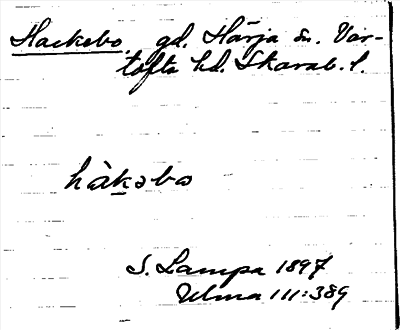 Hackebo. gd. Härja sn. Var-
tofta hd. Skarab. l.
hàkəbo
S. Lampa 1897
Ulma 111:389